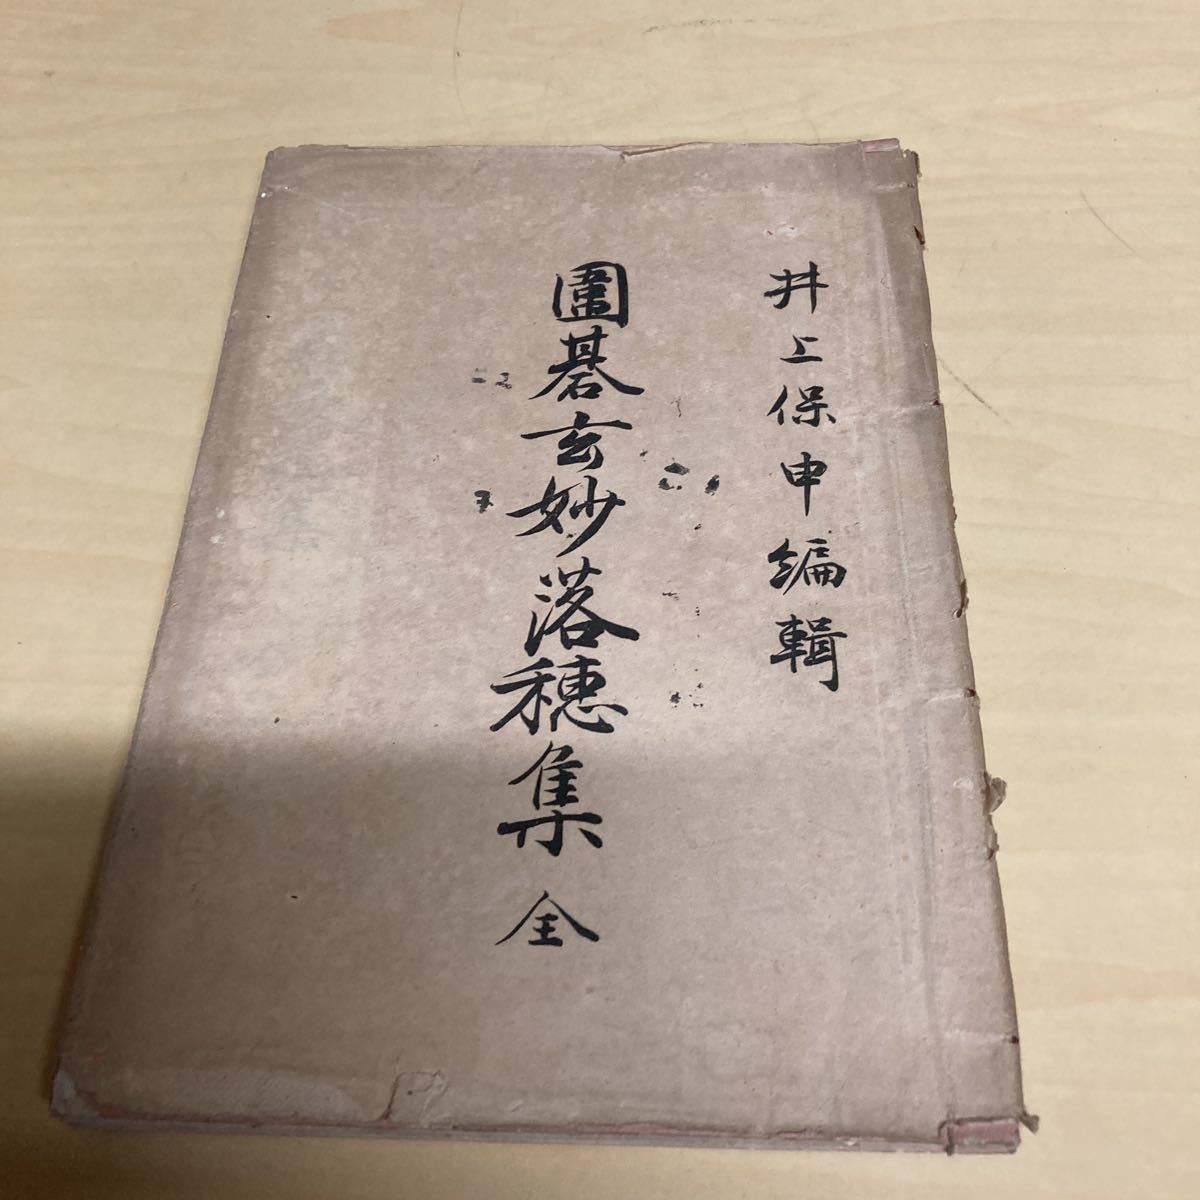 井上保申編輯
圍碁玄妙落穂集 全